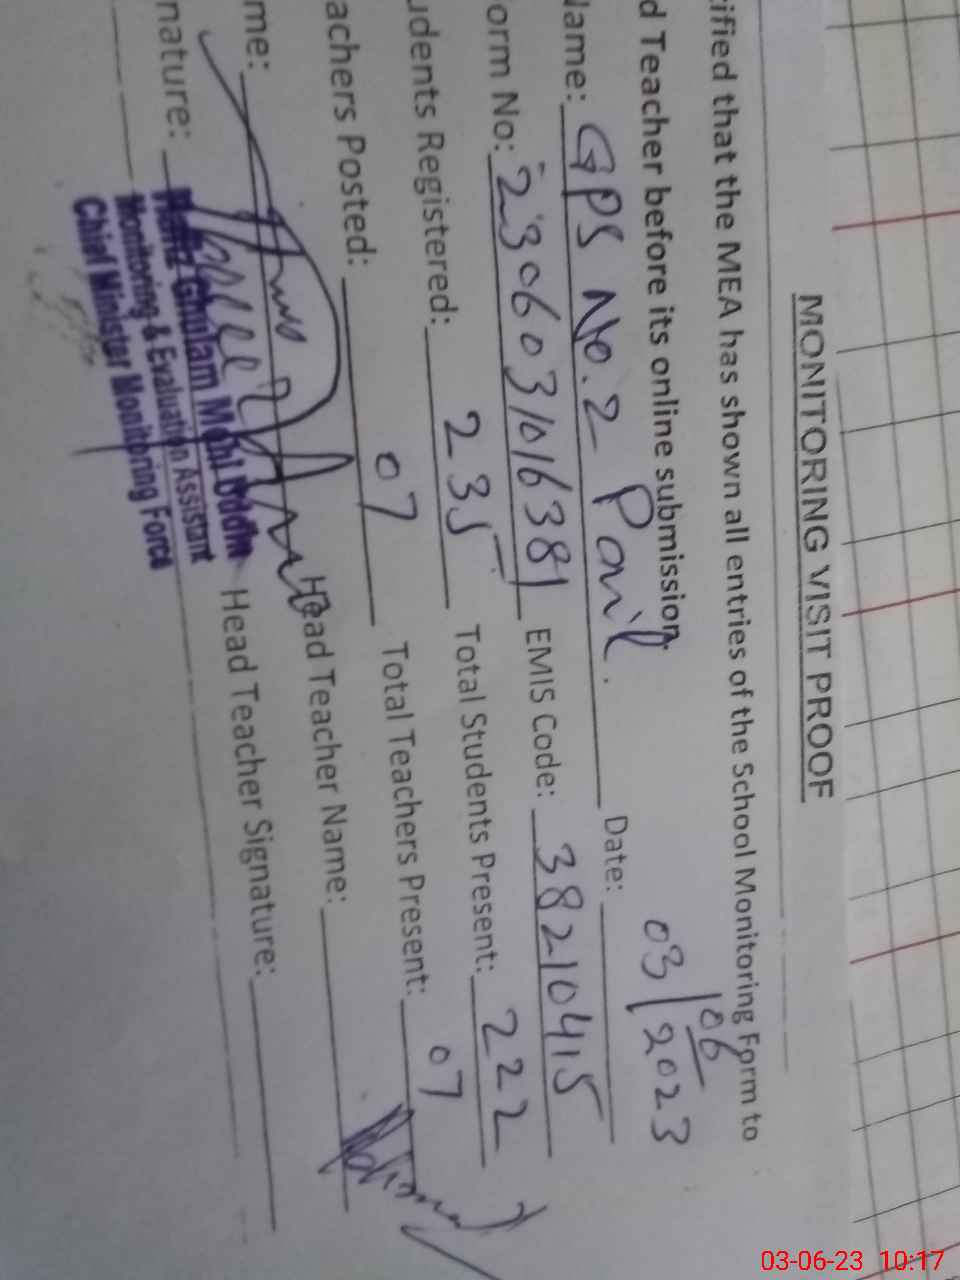 MONITORING VISIT PROOF
ified that the MEA has shown all entries of the School Monitoring Form to
d Teacher before its online submission.
Name: GPS No. 2 Date: 03/06/2023
orm No: 2306031016381 EMIS Code: 38210415
udents Registered: 235 Total Students Present: 222
achers Posted: 07 Total Teachers Present: 07
me: Head Teacher Name:
nature: Head Teacher Signature:
Hafiz Ghulam Mohi Uddin
Monitoring & Evaluation Assistant
Chief Minister Monitoring Force
03-06-23 10:17